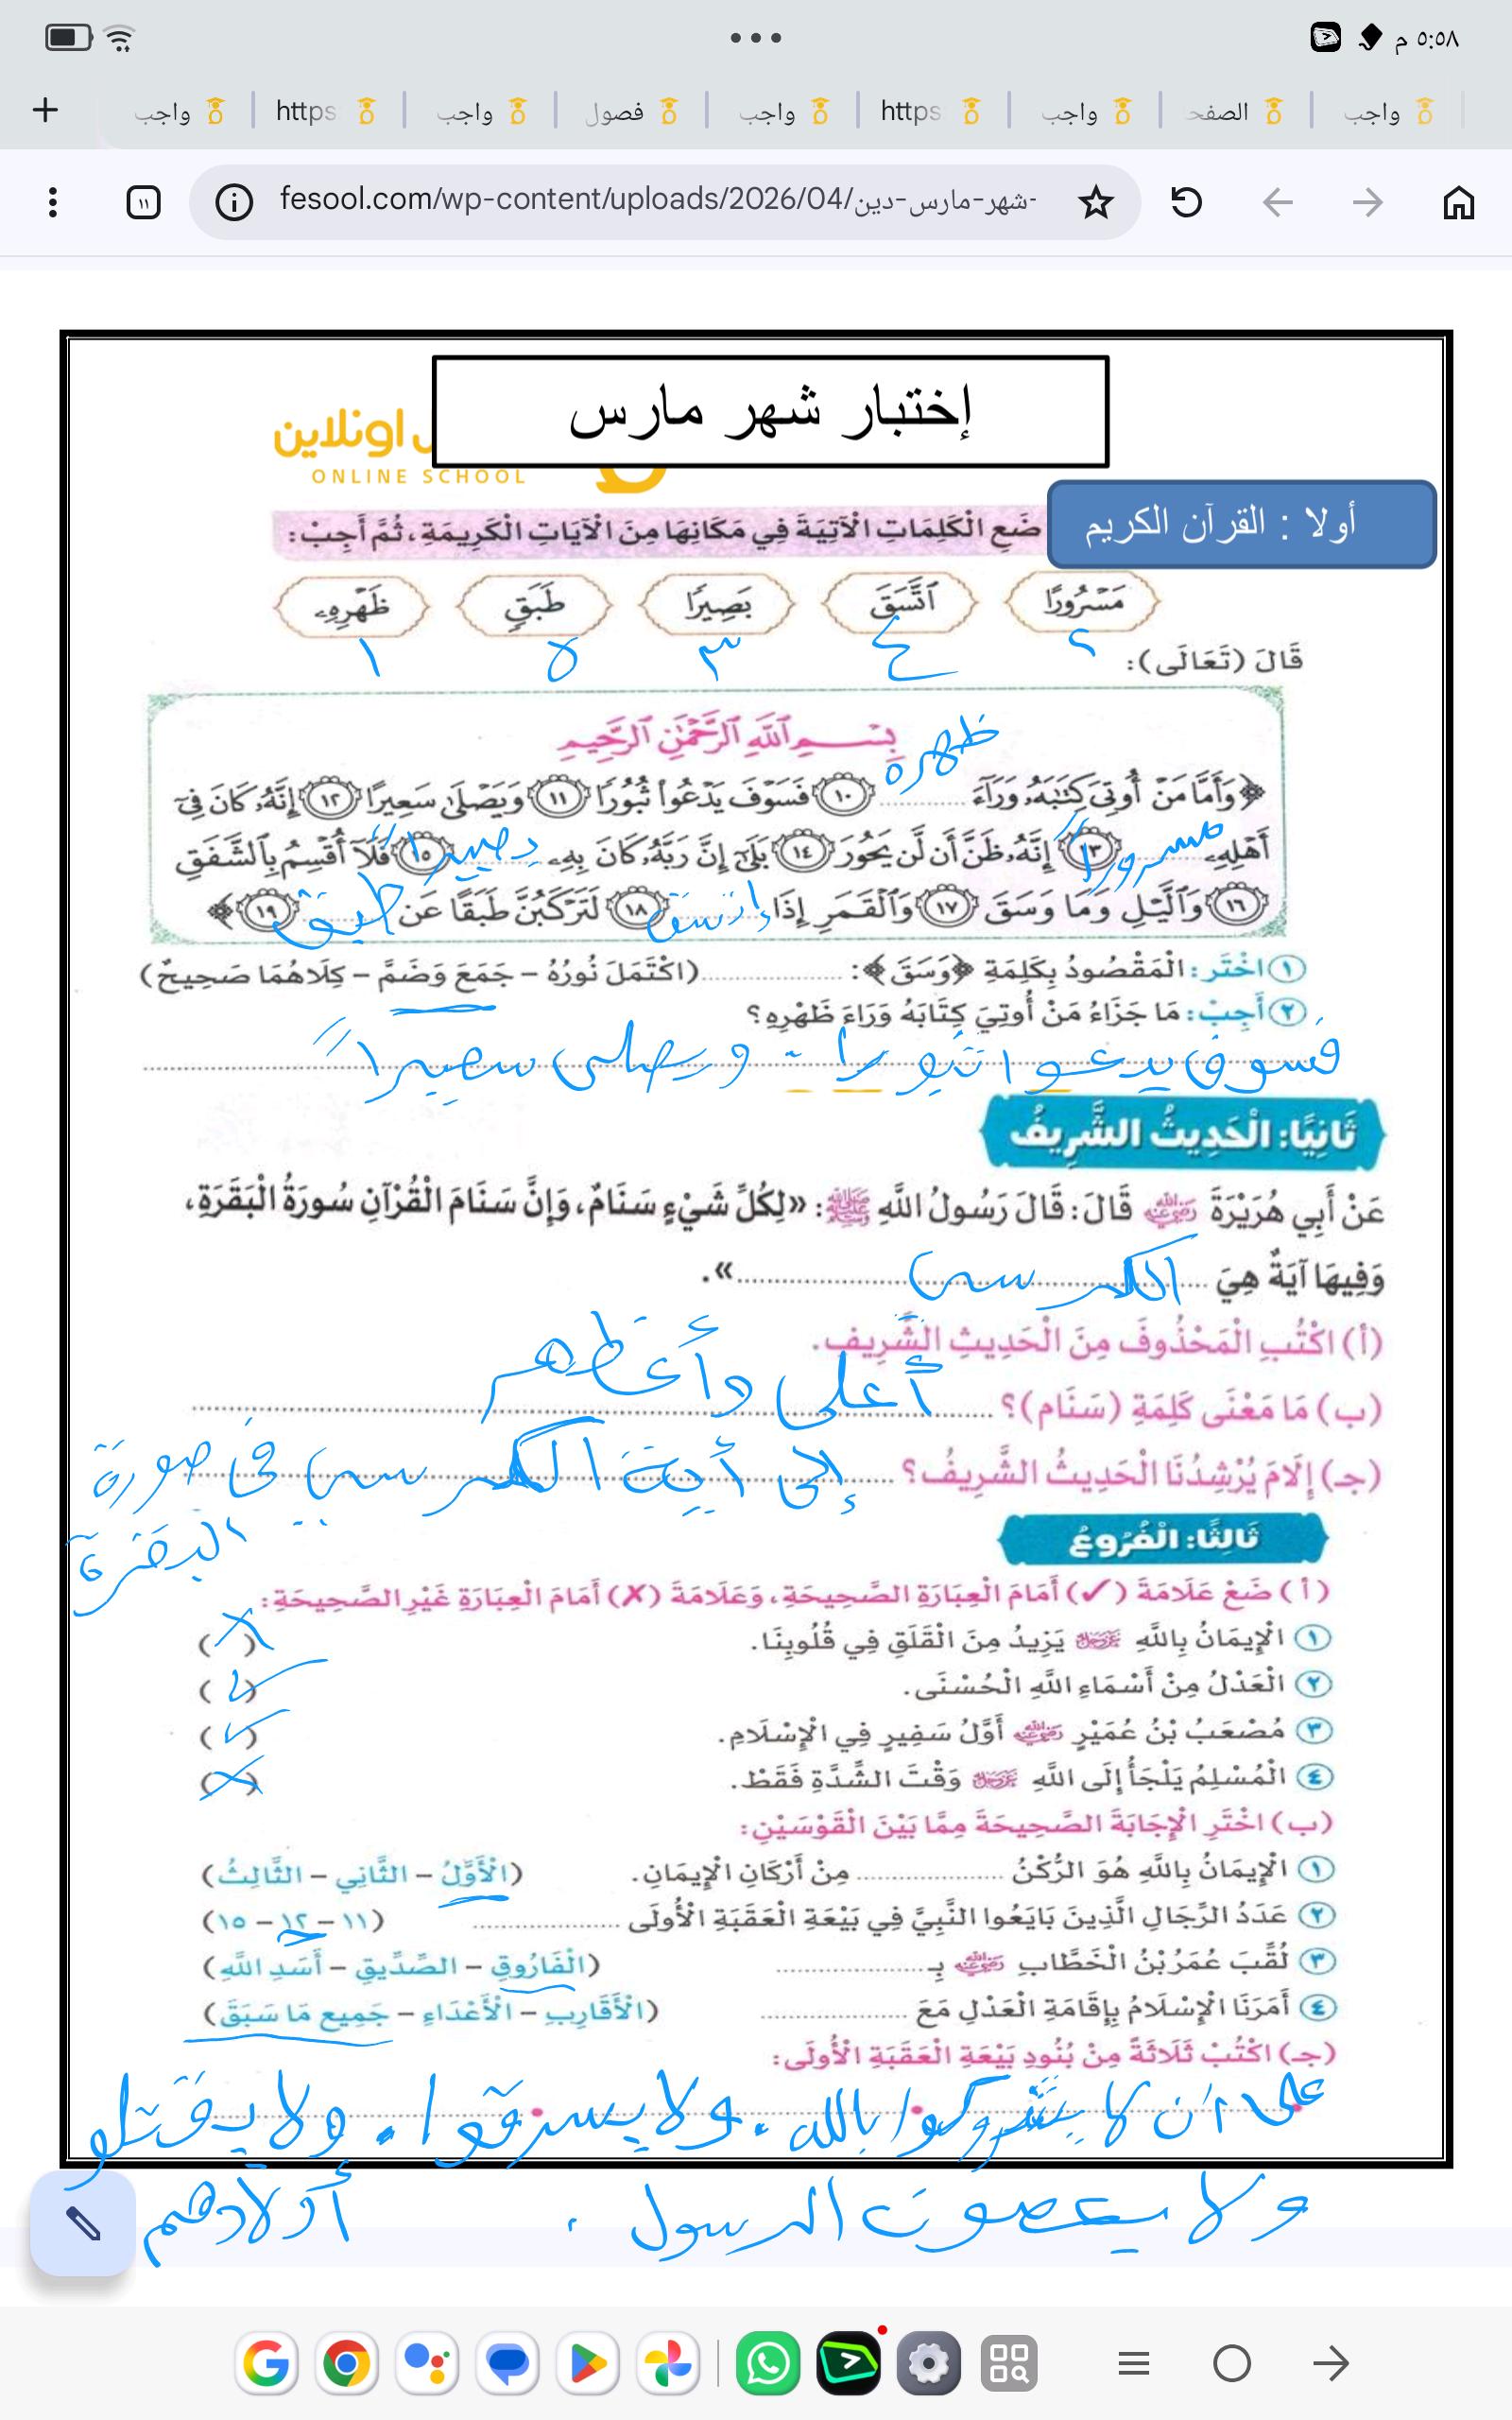 ٥:٥٨ م
واجب
الصفح
واجب
https
واجب
فصول
واجب
https
واجب
+
١١
fesool.com/wp-content/uploads/2026/04/شهر-مارس-دين-
إختبار شهر مارس
اونلاين
ONLINE SCHOOL
أولا : القرآن الكريم
ضَعِ الْكَلِمَاتِ الْآتِيَةَ فِي مَكَانِهَا مِنَ الْآيَاتِ الْكَرِيمَةِ، ثُمَّ أَجِبْ:
مَسْرُورًا
ٱتَّسَقَ
بَصِيرًا
طَبَقٍ
ظَهْرِهِۦ
٢ ٤ ٣ ٥ ١
قَالَ (تَعَالَى):
بِسْمِ ٱللَّهِ ٱلرَّحْمَٰنِ ٱلرَّحِيمِ
﴿وَأَمَّا مَنْ أُوتِىَ كِتَٰبَهُۥ وَرَآءَ ظهره ١٠ فَسَوْفَ يَدْعُوا۟ ثُبُورًا ١١ وَيَصْلَىٰ سَعِيرًا ١٢ إِنَّهُۥ كَانَ فِىٓ
أَهْلِهِۦ مسروراً ١٣ إِنَّهُۥ ظَنَّ أَن لَّن يَحُورَ ١٤ بَلَىٰٓ إِنَّ رَبَّهُۥ كَانَ بِهِۦ بصيراً ١٥ فَلَآ أُقْسِمُ بِٱلشَّفَقِ
١٦ وَٱلَّيْلِ وَمَا وَسَقَ ١٧ وَٱلْقَمَرِ إِذَا إتسق ١٨ لَتَرْكَبُنَّ طَبَقًا عَن طبق ١٩﴾
١ اخْتَر: الْمَقْصُودُ بِكَلِمَةِ ﴿وَسَقَ﴾: ............ (اكْتَمَلَ نُورُهُ – جَمَعَ وَضَمَّ – كِلَاهُمَا صَحِيحٌ)
٢ أَجِبْ: مَا جَزَاءُ مَنْ أُوتِيَ كِتَابَهُ وَرَاءَ ظَهْرِهِ؟
فسوف يدعوا ثبورا - ويصلى سعيراً
ثَانِيًا: الْحَدِيثُ الشَّرِيفُ
عَنْ أَبِي هُرَيْرَةَ رضي الله عنه قَالَ: قَالَ رَسُولُ اللَّهِ ﷺ: «لِكُلِّ شَيْءٍ سَنَامٌ، وَإِنَّ سَنَامَ الْقُرْآنِ سُورَةُ الْبَقَرَةِ،
وَفِيهَا آيَةٌ هِيَ الكرسي ............».
(أ) اكْتُبِ الْمَحْذُوفَ مِنَ الْحَدِيثِ الشَّرِيفِ.
(ب) مَا مَعْنَى كَلِمَةِ (سَنَام)؟ أعلى وأعظهم
(جـ) إِلَامَ يُرْشِدُنَا الْحَدِيثُ الشَّرِيفُ؟ إلى أيت الكرسي في صورة
البقرة
ثَالِثًا: الْفُرُوعُ
(أ) ضَعْ عَلَامَةَ (✓) أَمَامَ الْعِبَارَةِ الصَّحِيحَةِ، وَعَلَامَةَ (✗) أَمَامَ الْعِبَارَةِ غَيْرِ الصَّحِيحَةِ:
١ الْإِيمَانُ بِاللَّهِ عز وجل يَزِيدُ مِنَ الْقَلَقِ فِي قُلُوبِنَا. (✗)
٢ الْعَدْلُ مِنْ أَسْمَاءِ اللَّهِ الْحُسْنَى. (✓)
٣ مُصْعَبُ بْنُ عُمَيْرٍ رضي الله عنه أَوَّلُ سَفِيرٍ فِي الْإِسْلَامِ. (✓)
٤ الْمُسْلِمُ يَلْجَأُ إِلَى اللَّهِ عز وجل وَقْتَ الشِّدَّةِ فَقَطْ. (✗)
(ب) اخْتَرِ الْإِجَابَةَ الصَّحِيحَةَ مِمَّا بَيْنَ الْقَوْسَيْنِ:
١ الْإِيمَانُ بِاللَّهِ هُوَ الرُّكْنُ ............ مِنْ أَرْكَانِ الْإِيمَانِ. (الْأَوَّلُ – الثَّانِي – الثَّالِثُ)
٢ عَدَدُ الرِّجَالِ الَّذِينَ بَايَعُوا النَّبِيَّ فِي بَيْعَةِ الْعَقَبَةِ الْأُولَى ............ (١١ – ١٢ – ١٥)
٣ لُقِّبَ عُمَرُ بْنُ الْخَطَّابِ رضي الله عنه بِـ ............ (الْفَارُوقِ – الصِّدِّيقِ – أَسَدِ اللَّهِ)
٤ أَمَرَنَا الْإِسْلَامُ بِإِقَامَةِ الْعَدْلِ مَعَ ............ (الْأَقَارِبِ – الْأَعْدَاءِ – جَمِيعِ مَا سَبَقَ)
(جـ) اكْتُبْ ثَلَاثَةً مِنْ بُنُودِ بَيْعَةِ الْعَقَبَةِ الْأُولَى:
على أن لا يشركوا بالله . ولا يسرقوا . ولا يقتلو
أولادهم . ولا يعصون الرسول